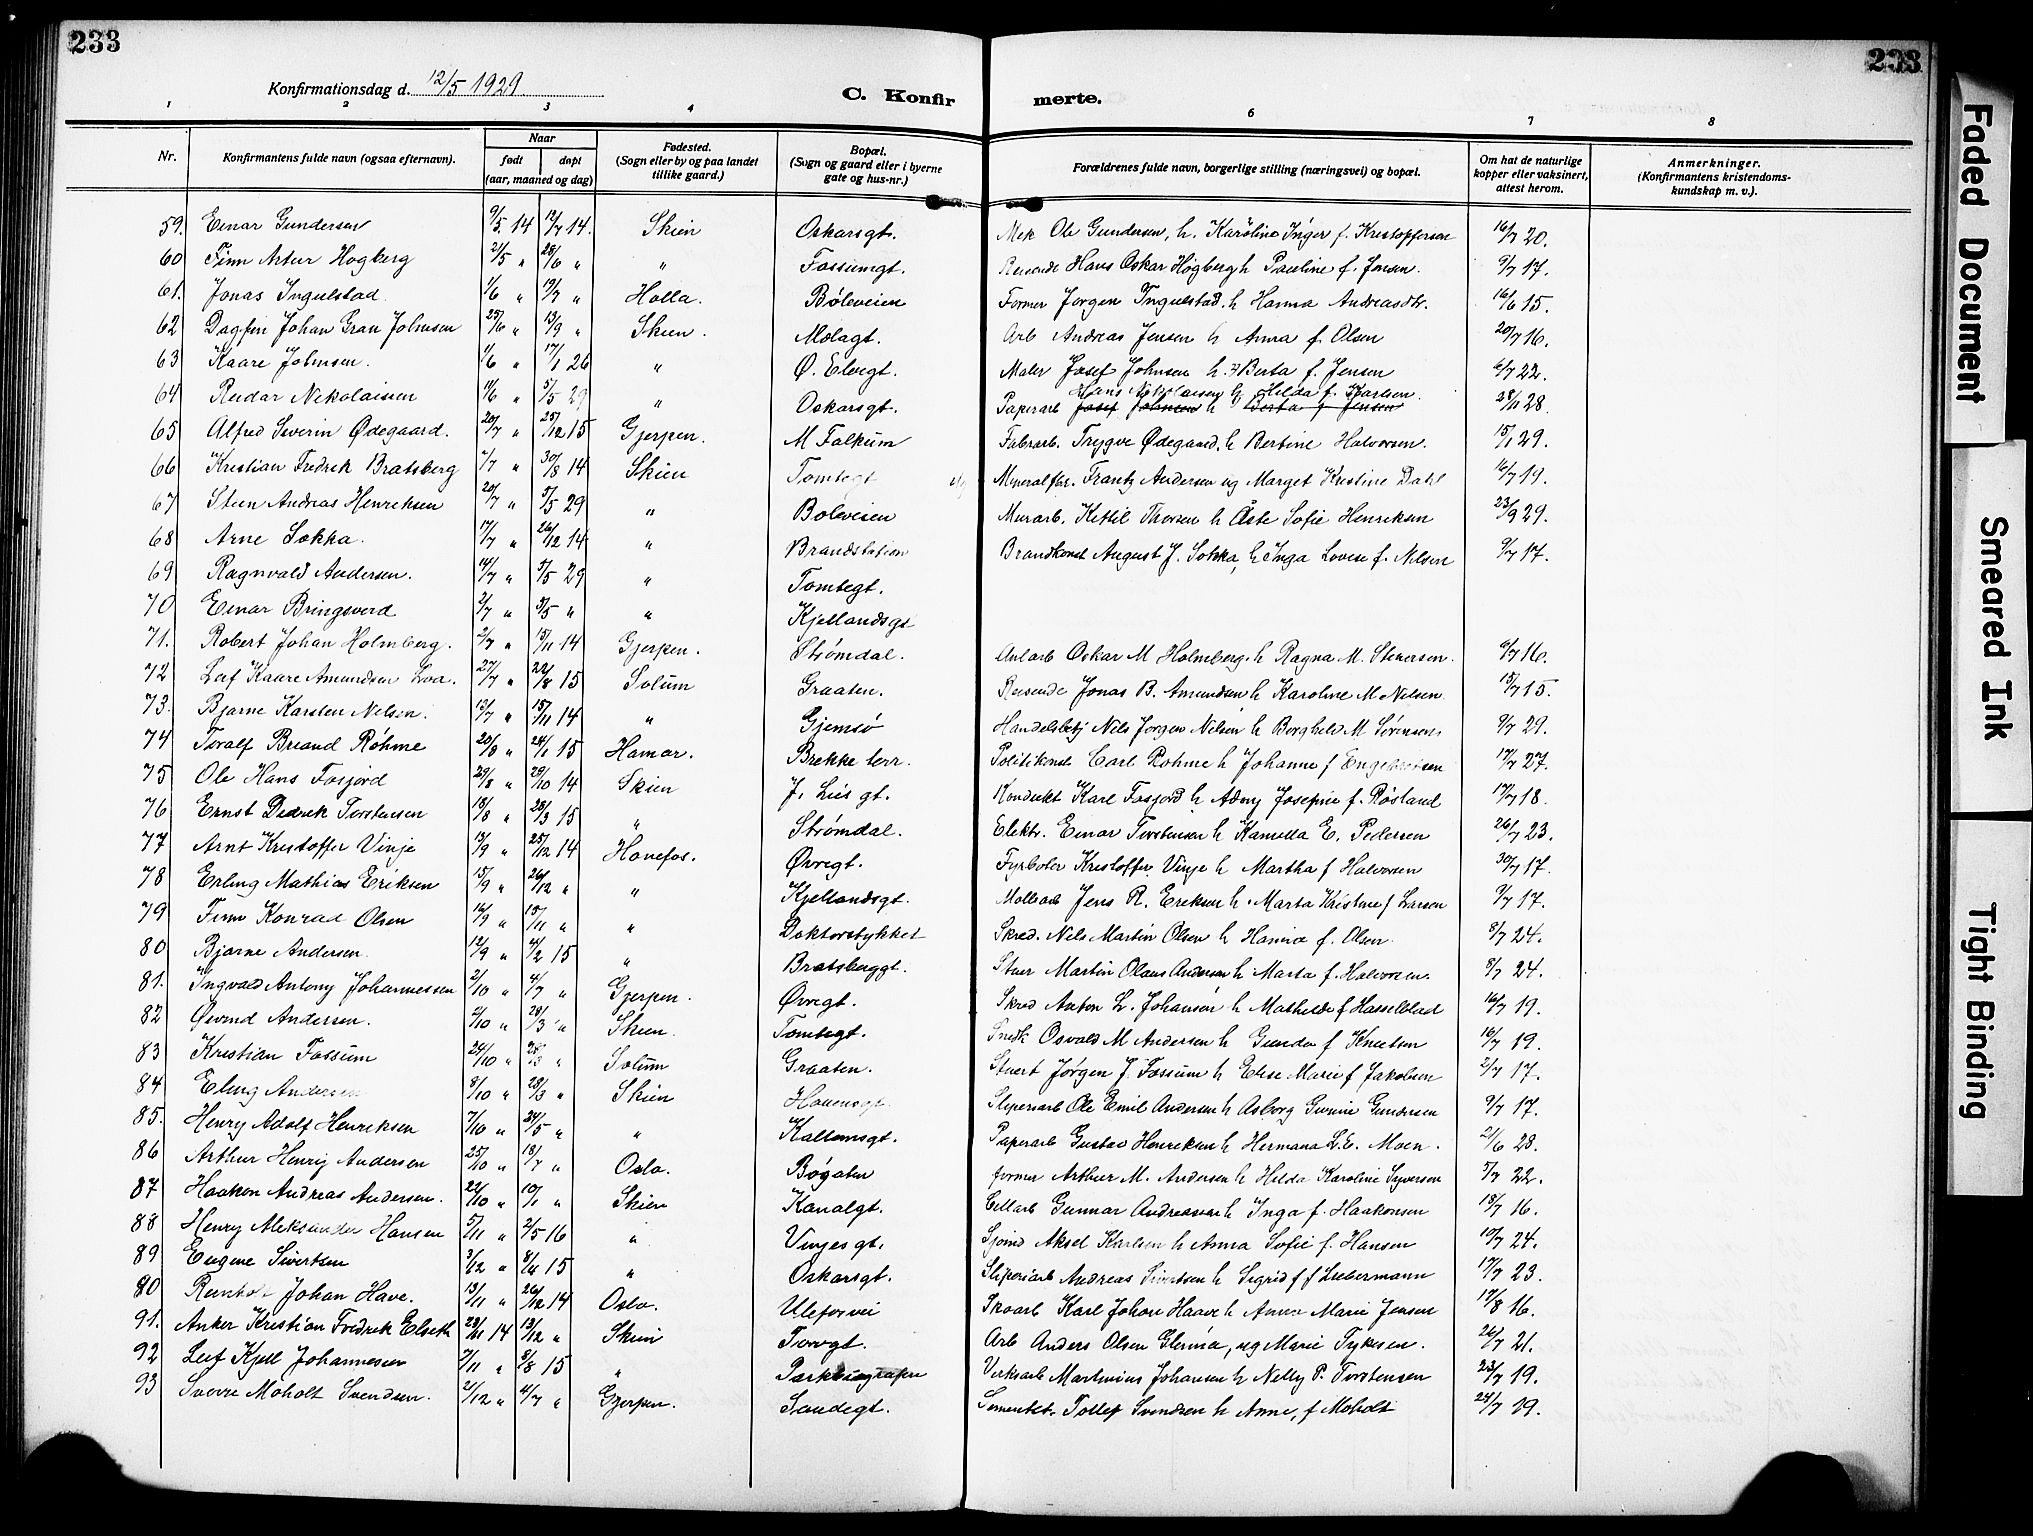 233
233
Konfirmationsdag d. 12/5 1929
C. Konfirmerte.
1 2 3 4 6 7 8
Nr. Konfirmantens fulde navn (ogsaa efternavn). Naar født døpt (aar, maaned og dag) Fødested. (Sogn eller by og paa landet tillike gaard.) Bopæl. (Sogn og gaard eller i byerne gate og hus-nr.) Forældrenes fulde navn, borgerlige stilling (næringsvei) og bopæl. Om hat de naturlige kopper eller vaksinert, attest herom. Anmerkninger. (Konfirmantens kristendoms-kundskap m. v.).
59. Einar Gundersen 9/5 14 12/7 14. Skien Oskarsgt. Mek Ole Gundersen, h. Karoline Inger f. Kristoffersen 16/7 20.
60 Finn Artur Høgberg 21/5 " 28/6 " " Fossumgt. Reisende Hans Oskar Høgberg h Pauline f. Jensen. 9/7 17.
61. Jonas Ingulstad 1/6 " 19/7 " Holla. Bøleveien Former Jørgen Ingulstad. h Hanna Andreasdtr. 16/6 15.
62 Dagfin Johan Gran Johnsen 25/6 " 13/9 " Skien. Molagt. Arb Andreas Jensen h Anna f. Olsen 20/7 16.
63 Kaare Johnsen. 1/6 " 17/1 26 " Ø. Elvegt. Maler Josef Johnsen h. Berta f. Jensen 6/7 22.
64 Reidar Nikolaisen 11/6 " 5/5 29 " Oskarsgt. Paperarb Hans Nikolaisen h Hilda f. Karlsen. Josef Johnsen h Berta f Jensen 28/11 28.
65 Alfred Severin Ødegaard. 20/7 " 25/12 15 Gjerpen. M Falkum Fabrarb. Trygve Ødegaard. h Bertine Halvorsen. 15/1 29.
66 Kristian Fredrik Bratsberg 7/7 " 30/8 14 Skien Tomtegt Mineralfar. Frantz Andersen ug Marget Kristine Dahl 16/7 19.
67 Steen Andreas Henriksen 20/7 " 5/5 29 " Boleveien Murarb. Kittil Thorsen h Åste Sofie Henriksen 23/9 29.
68 Arne Sokka. 17/7 " 26/12 14 " Brandstation Brandkonst August J. Sokka, h Inga Lovise f. Nilsen 9/7 17.
69 Ragnvald Andersen. 14/7 " 5/5 29 " Tomtegt.
70 Einar Bringsverd 2/7 " 5/5 " " Kjellandsgt
71. Robert Johan Holmberg. 2/7 " 15/11 14 Gjerpen. Strømdal. Anlarb Oskar M Holmberg. h Ragna M. Stenersen. 6/7 16.
72 Leif Kaare Amundsen Loa. 27/7 " 22/8 15 Solum Graaten. Reisende Jonas B. Amundsen h Karoline M Nilsen 15/7 15.
73. Bjarne Karsten Nilsen. 12/7 " 15/11 14 " Gjemsø Handelsbetj Nils Jørgen Nilsen h Borghild M Sørensen 9/7 29.
74 Toralf Breand Røhme 20/8 " 24/1 15 Hamar. Brekke terr. Politikonst Carl Rohme h Johanne f 17/7 27.
75 Ole Hans Fosjord 29/8 " 29/10 14 Skien J. Lies gt. Kondukt Karl Fosjord h Adny Josefine f. Røsland 17/7 18.
76 Ernst Dedrik Torstensen 18/8 " 28/3 15 " Strømdal. Elektr. Einar Torstensen h Kamilla E. Pedersen 26/7 23.
77 Arnt Kristoffer Vinje 13/9 " 25/12 14 Hønefos. Øvregt. Fyrbøter Kristoffer Vinje h Martha f Halvorsen 30/7 17.
78 Erling Mathias Eriksen 15/9 " 26/12 " " Kjellandsgt. Møllearb Jens R. Eriksen h. Marta Kristine f Larsen 9/7 17.
79 Finn Konrad Olsen 16/9 " 15/11 " " Doktorstykket Skred. Nils Martin Olsen h Hanna f. Olsen 8/7 24.
80 Bjarne Andersen 12/9 " 4/2 15 " Bratsberggt. Stuer Martin Olaus Andersen h Marta f. Halvorsen 8/7 24.
81. Ingvald Antony Johannessen 2/10 " 4/7 " Gjerpen. Øvregt. Skred Anton L. Johansen h Mathilde f Hasselblad 16/7 19.
82 Øivind Andersen. 2/10 " 28/3 " Skien. Tomtegt. Snedk Osvald M Andersen h Gunda f Knutsen 16/7 19.
83 Kristian Fossum 24/10 " 28/3 " Solum Graaten. Stuert Jørgen J. Fossum h Elise Marie f Jakobsen 2/7 17.
84 Eling Andersen 8/10 " 28/3 " Skien Sliperiarb Ole Emil Andersen h Asborg Gundersen 9/7 17.
85. Henry Adolf Henriksen 7/10 " 24/5 " " Kallemsgt. Paperarb Gustav Henriksen h Hermana L. E. Moen. 21/6 28.
86 Arthur Henrig Andersen 25/10 " 18/7 " Oslo. Bøgaten former Arthur M. Andersen h Hilda Karoline Syversen 5/7 22.
87 Haakon Andreas Andersen. 22/10 " 10/1 " Skien Kanalgt. Cellarb Gunnar Andreassen h Inga f. Haakonsen 18/7 16.
88 Henry Aleksander Hansen 5/11 " 2/5 16 " Vinjes gt. Sjømd Aksel Karlsen h Anna Sofie f. Hansen 10/7 24.
89 Eugene Sivertsen 3/12 " 8/4 15 " Oskarsgt. Sliperiarb Andreas Sivertsen h Sigrid f f Liebermann 17/7 23.
80 Johan Have. 13/11 " 26/12 14 Oslo. Ulefosvei Skoarb Karl Johan Haave h Anna Marie Jensen 17/8 16.
91. Anker Kristian Fredrik Elseth 29/11 14 13/12 " Skien Torvgt. Arb Anders Olsen, ug Marie Tyksen. 26/7 21.
92 Leif Kjell Johannesen 7/11 " 8/8 15 " Verksarb Martinius Johansen h Nelly P. Torstensen 23/7 19.
93 Sverre Moholt Svendsen. 2/12 " 4/7 " Gjerpen. Sandegt. Sementst. Tollef Svendsen h Anne, f Moholt 24/7 19.
Faded Document
Smeared Ink
Tight Binding